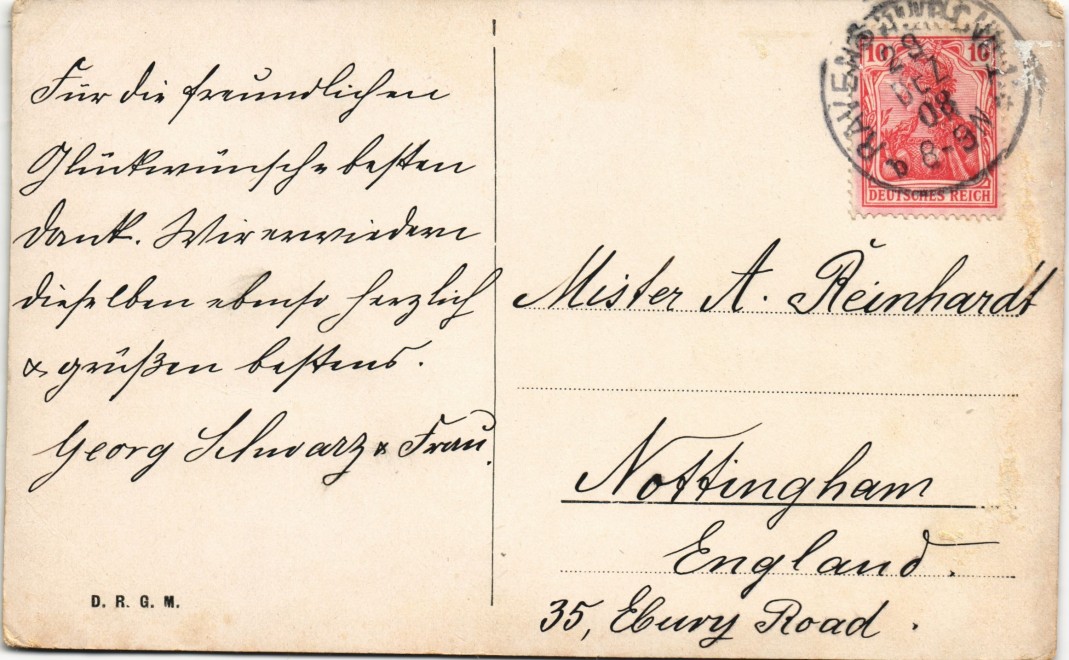 Für die freundlichen
Glückwünsche besten
Dank. Wir erwiedern
dieselben ebenso herzlich
& grüßen bestens.
Georg Schwarz & Frau.
D. R. G. M.
10 10
29
DEZ
08
b 8-9N
DEUTSCHES REICH
Mister A. Reinhardt
Nottingham
England.
35, Ebury Road.